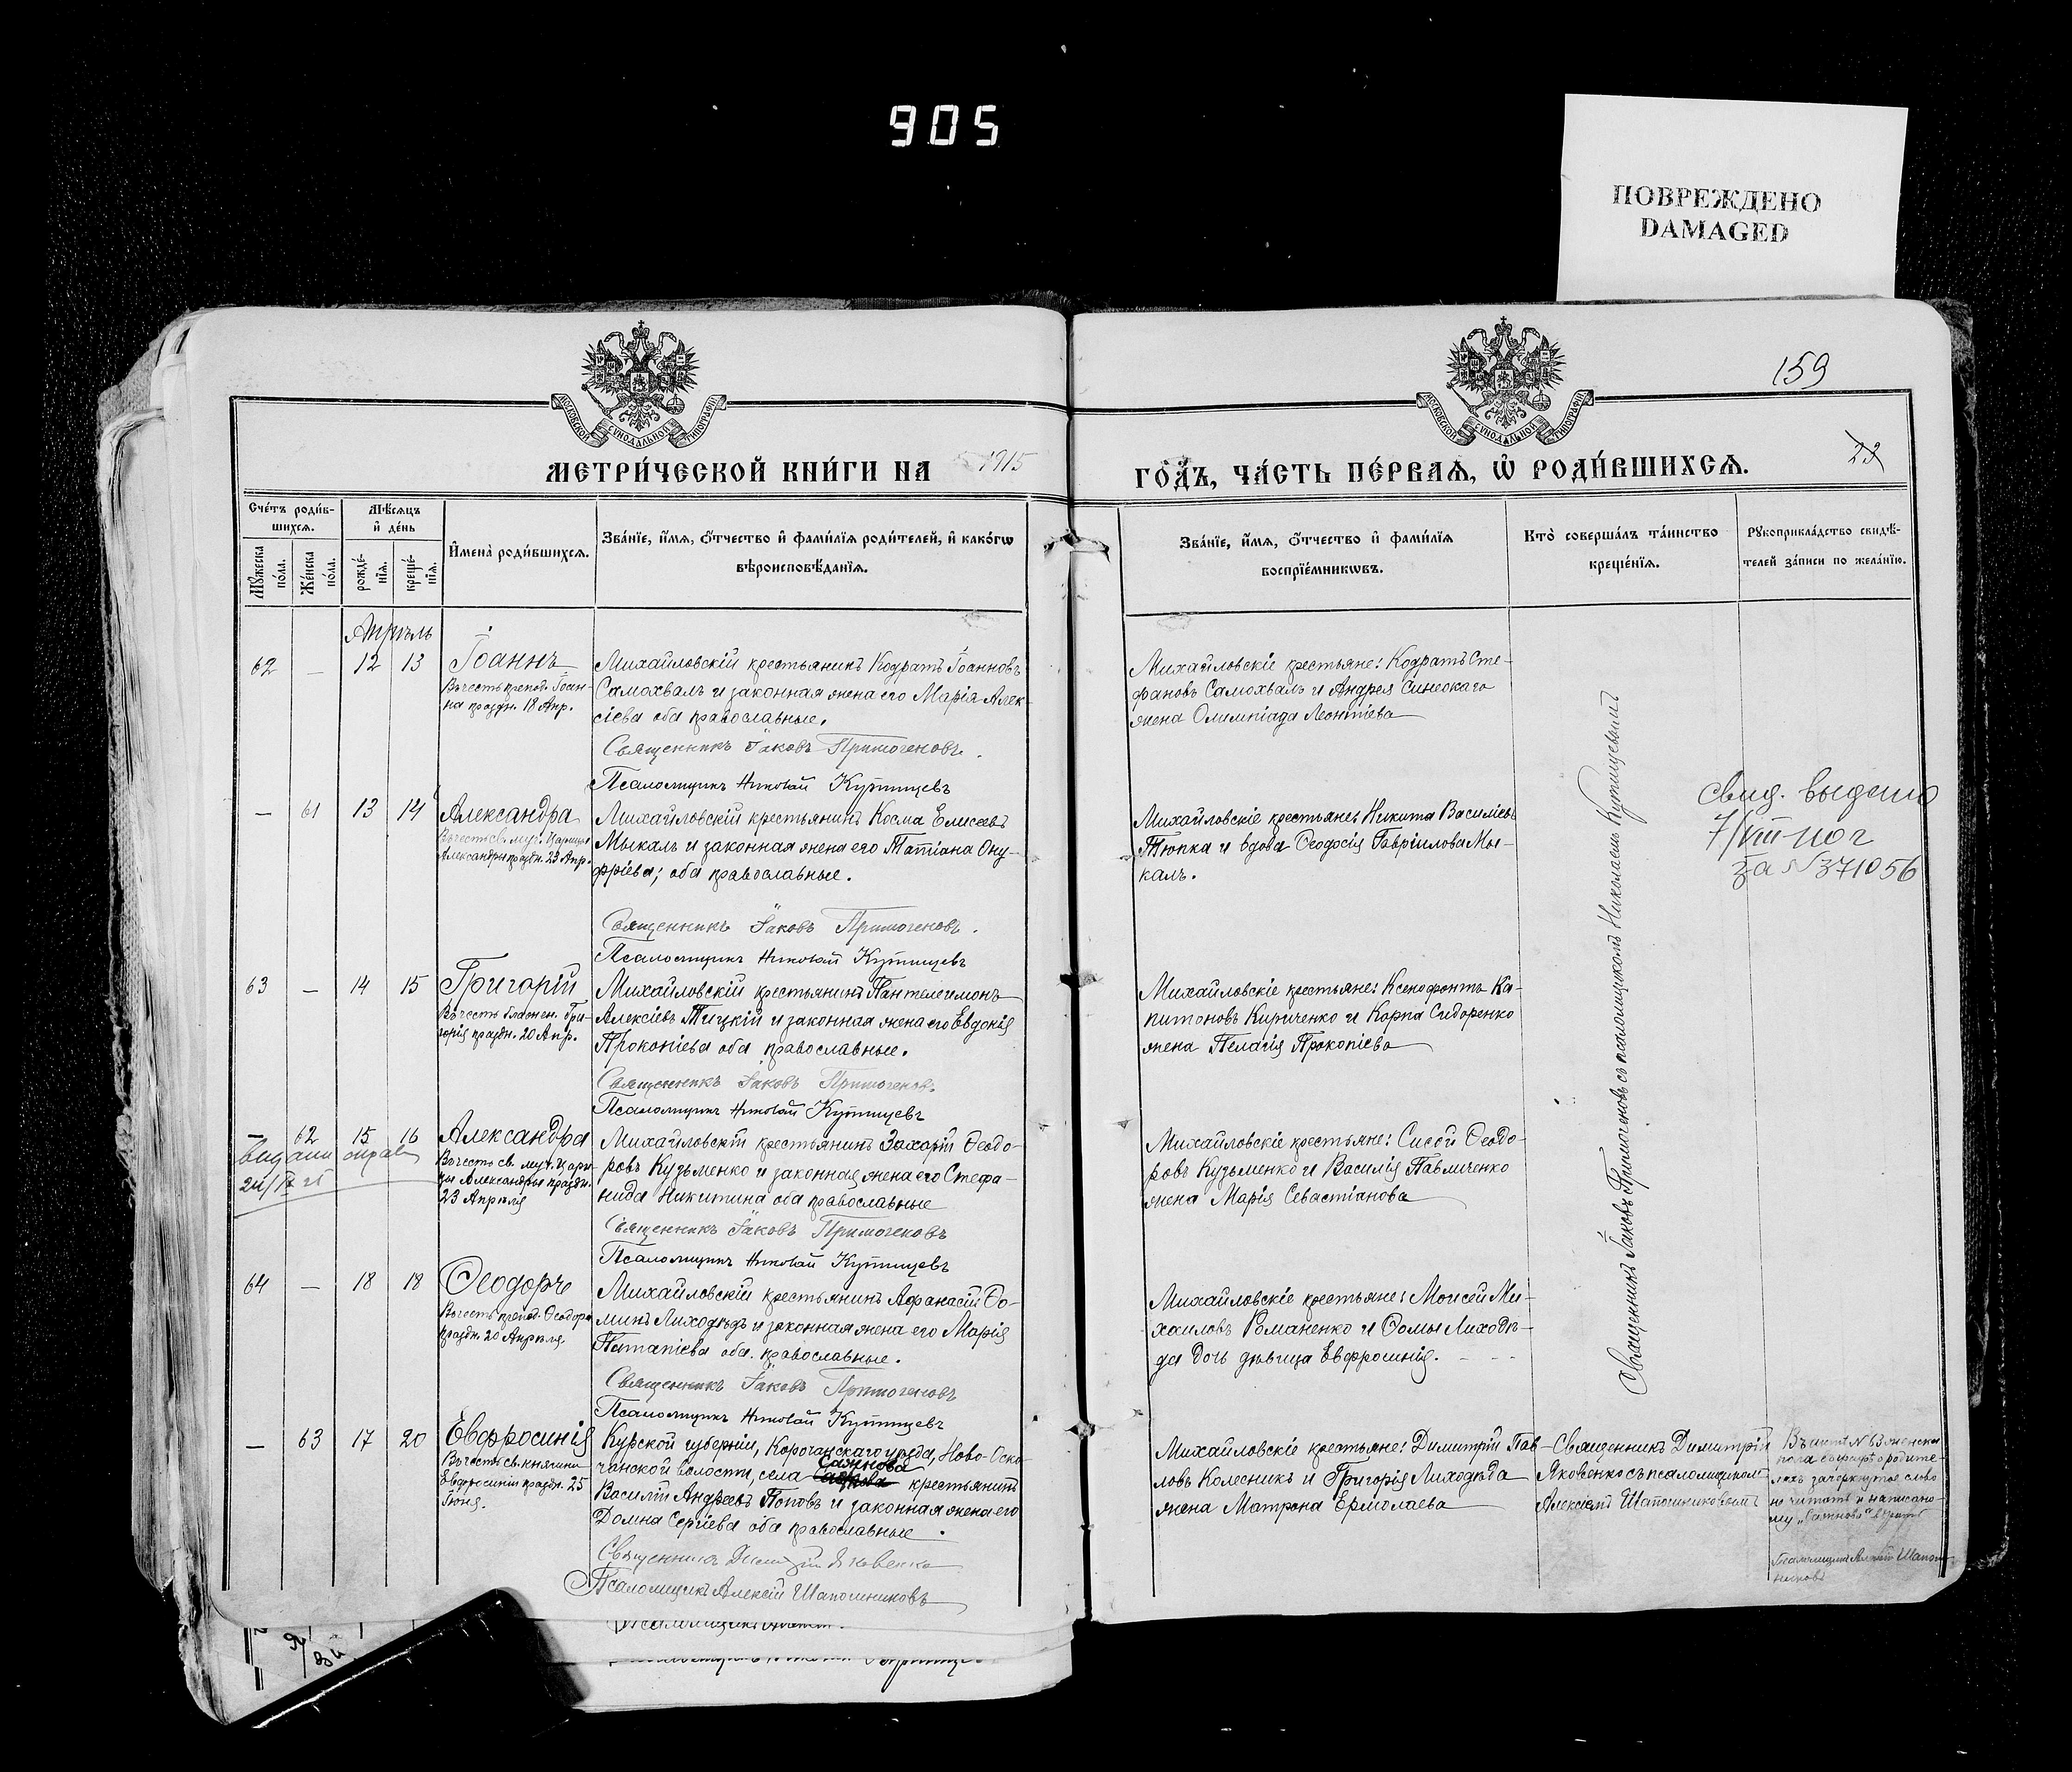 905
ПОВРЕЖДЕНО
DAMAGED
159
МОСКОВСКОЙ СѴНОДАЛЬНОЙ ТИПОГРАФІИ
МОСКОВСКОЙ СѴНОДАЛЬНОЙ ТИПОГРАФІИ
МЕТРИ́ЧЕСКОЙ КНИ́ГИ НА 1915
ГО́ДЪ, ЧА́СТЬ ПЕ́РВАѦ, Ѡ҆ РОДИ́ВШИХСѦ.
23
Сче́тъ роди́в-
шихсѧ.
Мꙋжеска по́ла.
Же́нска по́ла.
Мѣ́сѧцъ
и҆ де́нь
рожде́-нїѧ.
креще́-нїѧ.
И҆мена̀ роди́вшихсѧ.
Зва́нїе, и҆́мѧ, ѻ҆́тчество и҆ фами́лїѧ роди́телей, и҆ како́гѡ
вѣроисповѣ́данїѧ.
Зва́нїе, и҆́мѧ, ѻ҆́тчество и҆ фами́лїѧ
воспрїе́мникѡвъ.
Кто̀ соверша́лъ та́инство
креще́нїѧ.
Рꙋкоприкла́дство свидѣ́-
телей за́писи по жела́нїю.
Апрѣль
62 — 12 13 Іоаннъ
Въ честь препод. Іоан-
на праздн. 18 Апр.
Михайловскій крестьянинъ Кодратъ Іоанновъ
Самохвалъ и законная жена его Марія Алек-
сіева оба православные.
Священникъ Іаковъ Примогеновъ.
Псаломщикъ Николай Купищевъ
Михайловскіе крестьяне: Кодратъ Сте-
фановъ Самохвалъ и Андрея Синеокаго
жена Олимпіада Леонтіева
— 61 13 14 Александра
Въ честь св. муч. Царицы
Александры праздн. 23 Апр.
Михайловскій крестьянинъ Косма Елисеевъ
Мыкалъ и законная жена его Татіана Ону-
фріева; оба православные.
Священникъ Іаковъ Примогеновъ.
Псаломщикъ Николай Купищевъ
Михайловскіе крестьяне: Никита Васильевъ
Тюпка и вдова Ѳеодосія Гавріилова Мы-
калъ.
свид. выдано
за N 371056
63 — 14 15 Григорій
Въ честь блажен. Гри-
горія праздн. 20 Апр.
Михайловскій крестьянинъ Пантелеимонъ
Алексіевъ Тицкій и законная жена его Евдокія
Прокопіева оба православные.
Священникъ Іаковъ Примогеновъ.
Псаломщикъ Николай Купищевъ
Михайловскіе крестьяне: Ксенофонтъ Ка-
питоновъ Кириченко и Карпа Сидоренко
жена Пелагія Прокопіева
— 62 15 16 Александра
Въ честь св. муч. Цари-
цы Александры праздн.
23 Апрѣля
Михайловскій крестьянинъ Захарій Ѳеодо-
ровъ Кузьменко и законная жена его Стефа-
нида Никитина оба православные
Священникъ Іаковъ Примогеновъ
Псаломщикъ Николай Купищевъ
Михайловскіе крестьяне: Сисой Ѳеодо-
ровъ Кузьменко и Василія Павличенко
жена Марія Севастіанова
64 — 18 18 Ѳеодоръ
Въ честь препод. Ѳеодора
праздн. 20 Апрѣля.
Михайловскій крестьянинъ Афанасій Ѳо-
минъ Лиходѣдъ и законная жена его Марія
Патапіева оба православные.
Священникъ Іаковъ Примогеновъ
Псаломщикъ Николай Купищевъ
Михайловскіе крестьяне: Моисей Ми-
хаиловъ Романенко и Ѳомы Лиходѣ-
да дочь дѣвица Евфросинія.
Священникъ Іаковъ Примогеновъ съ псаломщикомъ Николаемъ Купищевымъ
— 63 17 20 Евфросинія
Въ честь св. княгини
Евфросиніи праздн. 25
Іюня.
Курской губерніи, Корочанскаго уѣзда, Ново-Оско-
чанской волости, села Сажнова крестьянинъ
Василій Андреевъ Поповъ и законная жена его
Домна Сергіева оба православные.
Священникъ Димитрій Яковенко
Псаломщикъ Алексій Шапошниковъ
Михайловскіе крестьяне: Димитрій Пав-
ловъ Колесникъ и Григорія Лиходѣда
жена Матрона Ермолаева
Священникъ Димитрій
Яковенко съ псаломщикомъ
Алексіемъ Шапошниковымъ
Въ N 63 женска
пола въ графѣ о родите-
ляхъ зачеркнутое слово
не читать и написано-
му „Сажнова“
Псаломщикъ Алексій Шапош-
никовъ